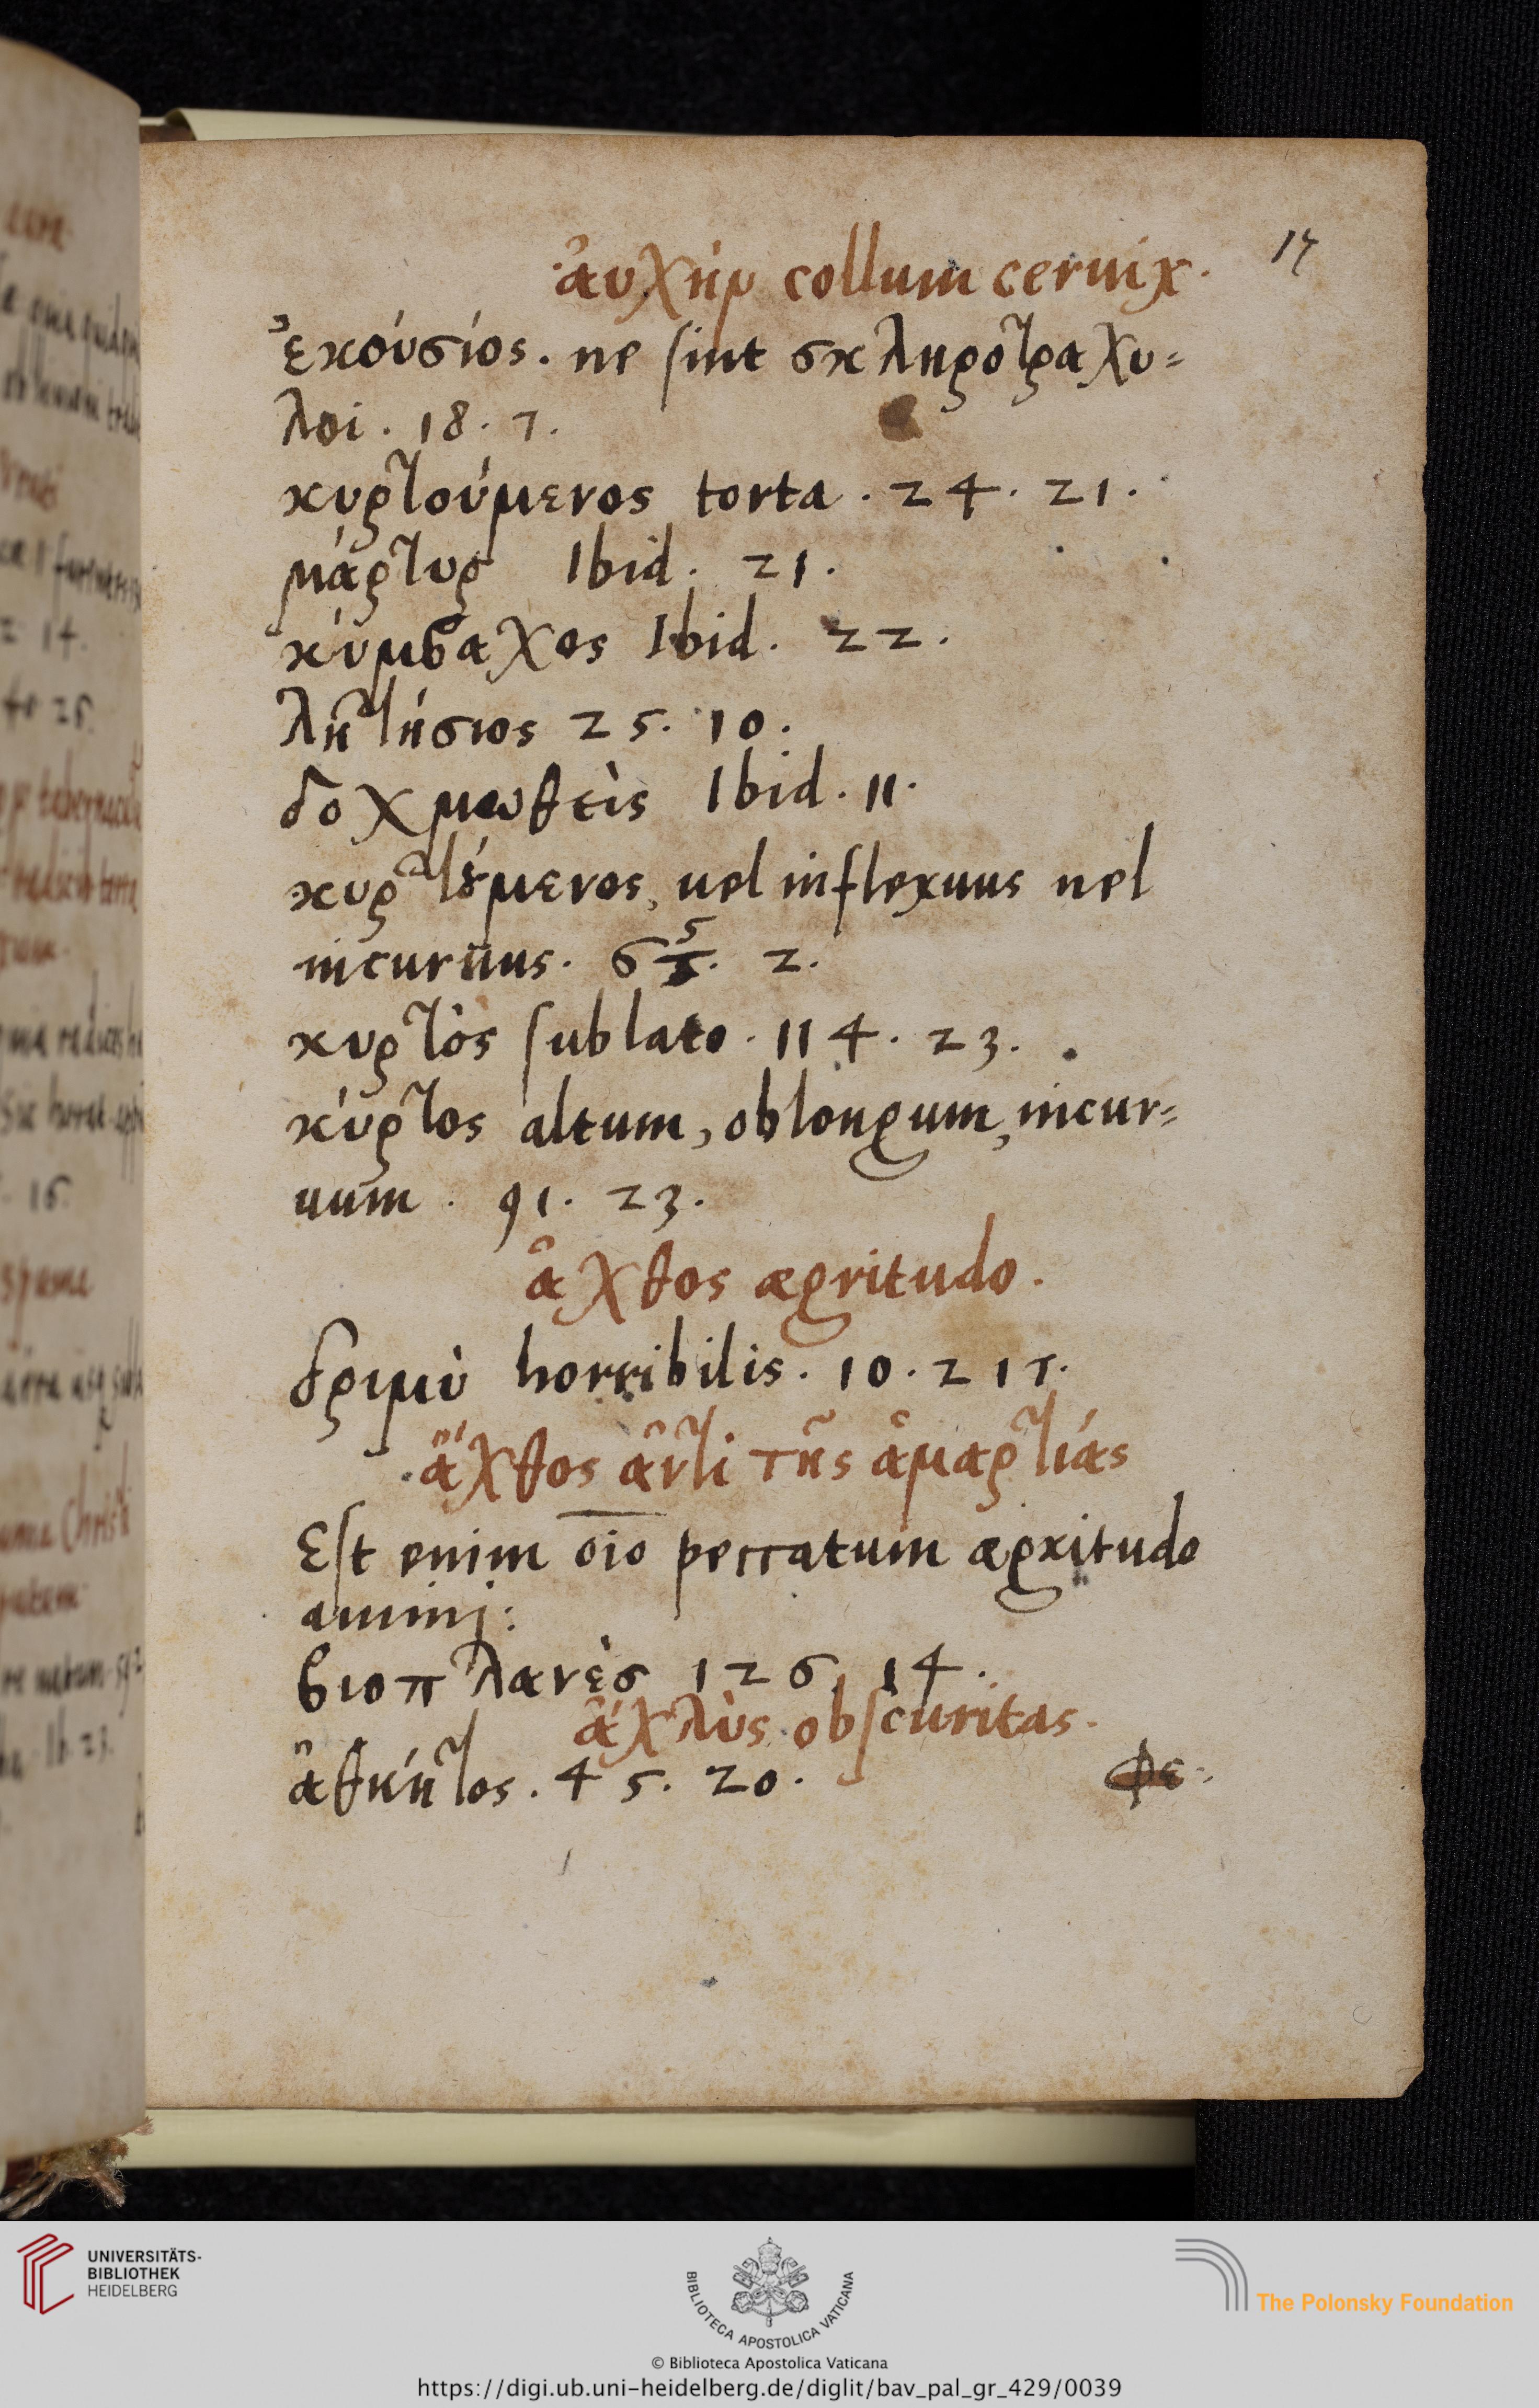 ἀυχήν collum ceruix.
17
ἑκούσίος. ne sint σκληροτραχυ=
λοι. 18. 7.
κυρτούμενος torta. 24. 21.
μάρτυρ Ibid. 21.
κύμβαχος Ibid. 22.
22.
δοχμωθεὶς Ibid. 11.
κυρτούμενος, uel inflexuus uel
incuruus. 6 5. 2.
κυρτὸς sublato. 114. 23.
κύρτος altum, oblongum, incur=
uum. 91. 23.
ἄχθος ægritudo.
δριμὺ horribilis. 10.
ἄχθος ἀντὶ τῆς ἁμαρτίας
Est enim oīo peccatum ægritudo
animi:
βιοπλανὲσ 126. 14.
ἀχλὺς obscuritas.
45. 20.
UNIVERSITÄTS-
BIBLIOTHEK
HEIDELBERG
BIBLIOTECA APOSTOLICA VATICANA
The Polonsky Foundation
© Biblioteca Apostolica Vaticana
https://digi.ub.uni-heidelberg.de/diglit/bav_pal_gr_429/0039